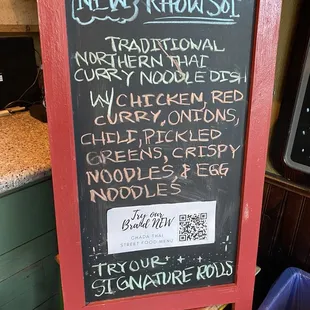 NEW? KHOW SOI
TRADITIONAL
NORTHERN THAI
CURRY NOODLE DISH
W/ CHICKEN, RED
CURRY, ONIONS,
CHILI, PICKLED
GREENS, CRISPY
NOODLES, & EGG
NOODLES
Try our
Brand NEW
CHADA THAI
STREET FOOD MENU
TRY OUR
SIGNATURE ROLLS